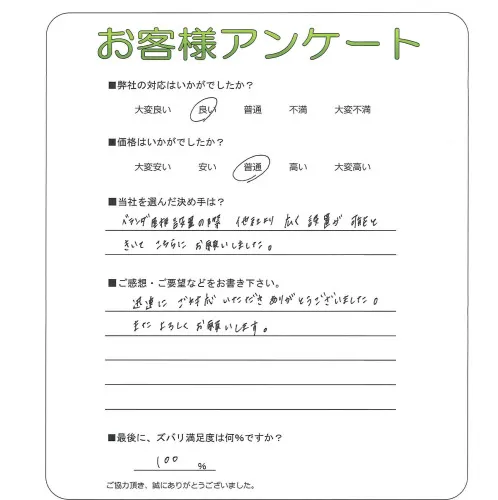 お客様アンケート
■弊社の対応はいかがでしたか？
大変良い 良い 普通 不満 大変不満
■価格はいかがでしたか？
大変安い 安い 普通 高い 大変高い
■当社を選んだ決め手は？
ベランダ屋根設置の際 他社より 広く 設置が 可能と
きいて こちらに お願いしました。
■ご感想・ご要望などをお書き下さい。
迅速に ご対応いただき ありがとうございました。
また よろしく お願いします。
■最後に、ズバリ満足度は何%ですか？
100 %
ご協力頂き、誠にありがとうございました。